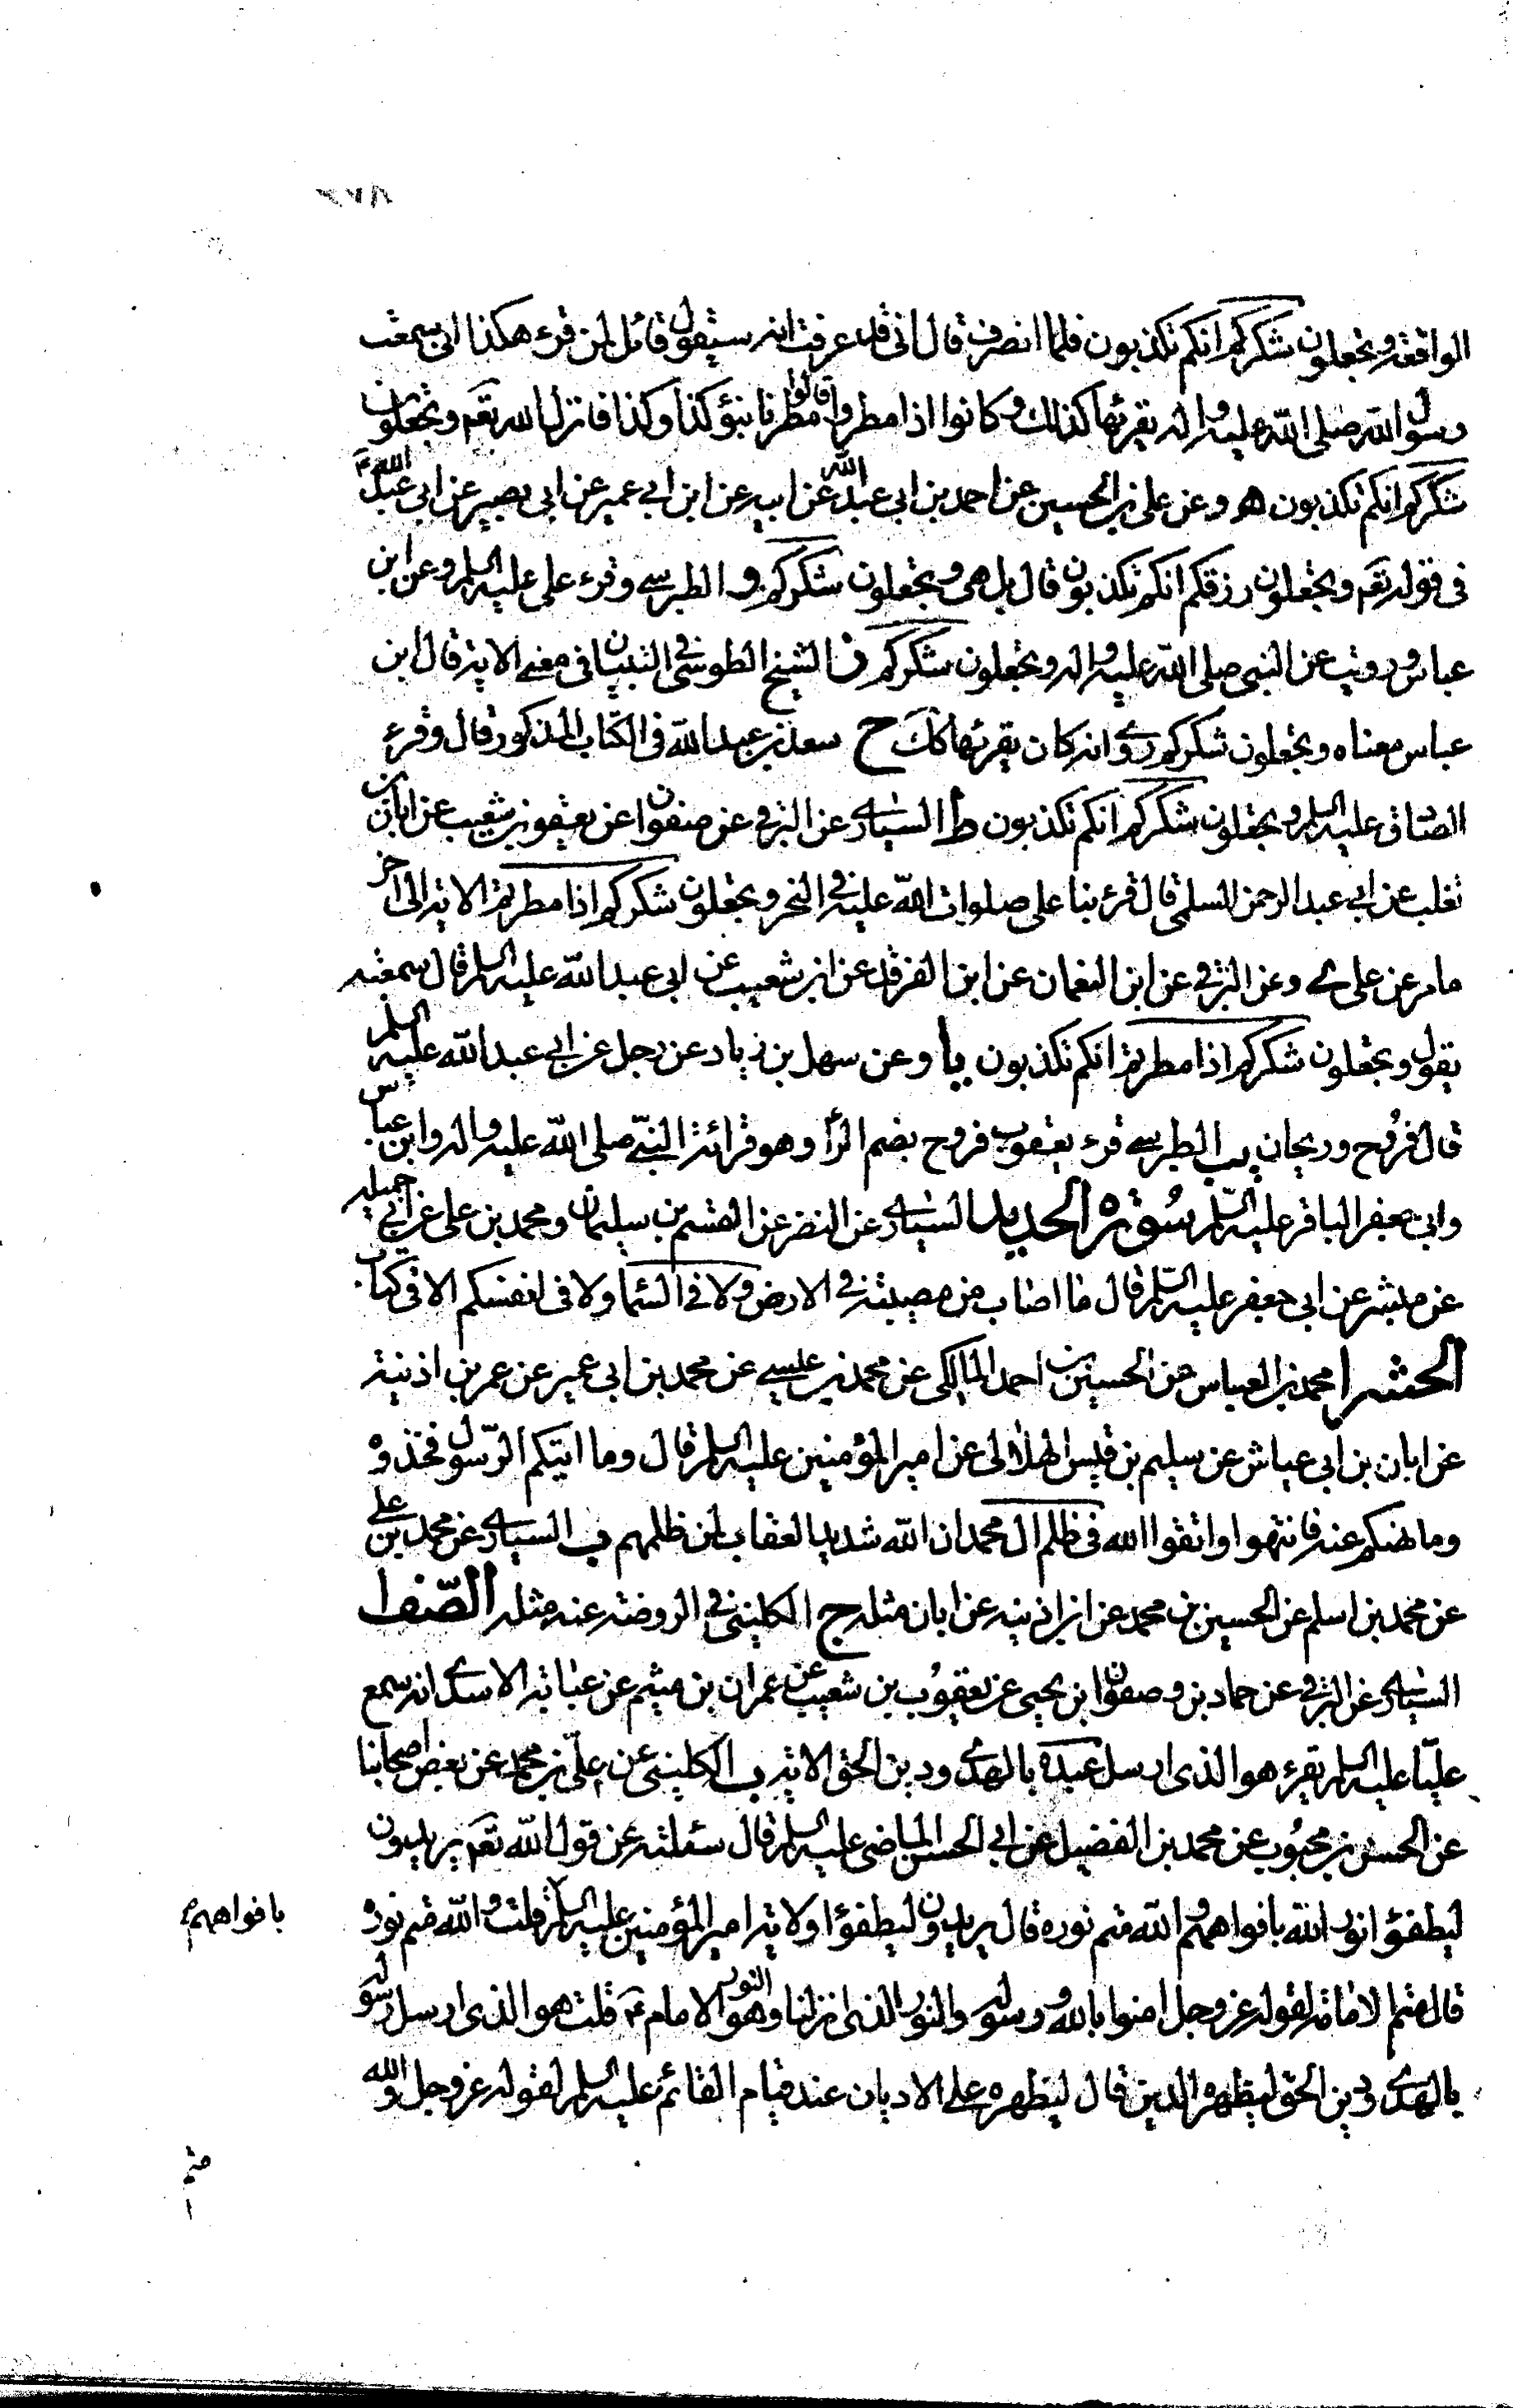 الواقعة وتجعلون شكركم انكم تكذبون فلما انصرف قال انى قد عرفت انه سيقول قائل لمن قرء هكذا انى سمعت
رسول الله صلى الله عليه واله يقرئها كذلك وكانوا اذا مطروا قالوا مطرنا بنؤ كذا وكذا فانزل الله تعم وتجعلون
شكركم انكم تكذبون هو وعن على بن الحسين عن احمد بن ابى عبد الله عن ابيه عن ابن ابى عمير عن ابى بصير عن ابى عبد الله ع
فى قوله تعم وتجعلون رزقكم انكم تكذبون قال بل هى وتجعلون شكركم و الطبرسى وقرء على عليه السلم وعن ابن
عباس ورويت عن النبى صلى الله عليه واله وتجعلون شكركم ز الشيخ الطوسى فى التبيان فى معنى الاية قال ابن
عباس معناه وتجعلون شكركم روى انه كان يقرئها كك ح سعد بن عبد الله فى الكتاب المذكور قال وقرء
الصادق عليه السلم وتجعلون شكركم انكم تكذبون ط السيارى عن البرقى عن صفوان عن يعقوب بن شعيب عن ابان بن
تغلب عن ابى عبد الرحمن السلمى قال قرء بنا على صلوات الله عليه فى الفجر وتجعلون شكركم اذا مطرتم الاية الى اخر
ما مر عن على ى وعن البرقى عن ابن النعمان عن ابن الفرقد عن ابن شعيب عن ابى عبد الله عليه السلم قال سمعته
يقول وتجعلون شكركم اذا مطرتم انكم تكذبون يا وعن سهل بن زياد عن رجل عن ابى عبد الله عليه السلم
قال فروح وريحان يب الطبرسى قرء يعقوب فروح بضم الرأ وهو قرائة النبى صلى الله عليه واله وابن عباس
وابى جعفر الباقر عليه السلم سورة الحديد السيارى عن النضر عن القسم بن سليمان ومحمد بن على عن ابى جميله
عن ميسر عن ابى جعفر عليه السلم قال ما اصاب من مصيبة فى الارض ولا فى السماء ولا فى انفسكم الا فى كتاب
الحشر ا محمد بن العباس عن الحسين بن احمد المالكى عن محمد بن عيسى عن محمد بن ابى عمير عن عمر بن اذنية
عن ابان بن ابى عياش عن سليم بن قيس الهلالى عن امير المؤمنين عليه السلم قال وما اتيكم الرسول فخذوه
وما نهيكم عنه فانتهوا واتقوا الله فى ظلم ال محمد ان الله شديد العقاب لمن ظلمهم ب السيارى عن محمد بن على
عن محمد بن اسلم عن الحسين بن محمد عن ابن اذينه عن ابان مثله ج الكلينى فى الروضة عنه مثله الصف ا
السيارى عن البرقى عن حماد بن وصفوان ابن يحيى عن يعقوب بن شعيب عن عمران بن ميثم عن عباية الاسدى انه سمع
عليا عليه السلم يقرء هو الذى ارسل عبده بالهدى ودين الحق الاية ب الكلينى عن على بن محمد عن بعض اصحابنا
عن الحسن بن محبوب عن محمد بن الفضيل عن ابى الحسن الماضى عليه السلم قال سئلته عن قول الله تعم يريدون
ليطفؤا نور الله بافواههم والله متم نوره قال يريدون ليطفؤا ولاية امير المؤمنين عليه السلم بافواههم قلت والله متم نوره
قال متم الامامة لقوله عز وجل امنوا بالله ورسوله والنور الذى انزلنا وهو النور الامام ع قلت هو الذى ارسل رسوله
بالهدى ودين الحق ليظهره الدين قال ليظهره على الاديان عند قيام القائم عليه السلم لقوله عز وجل والله
متم